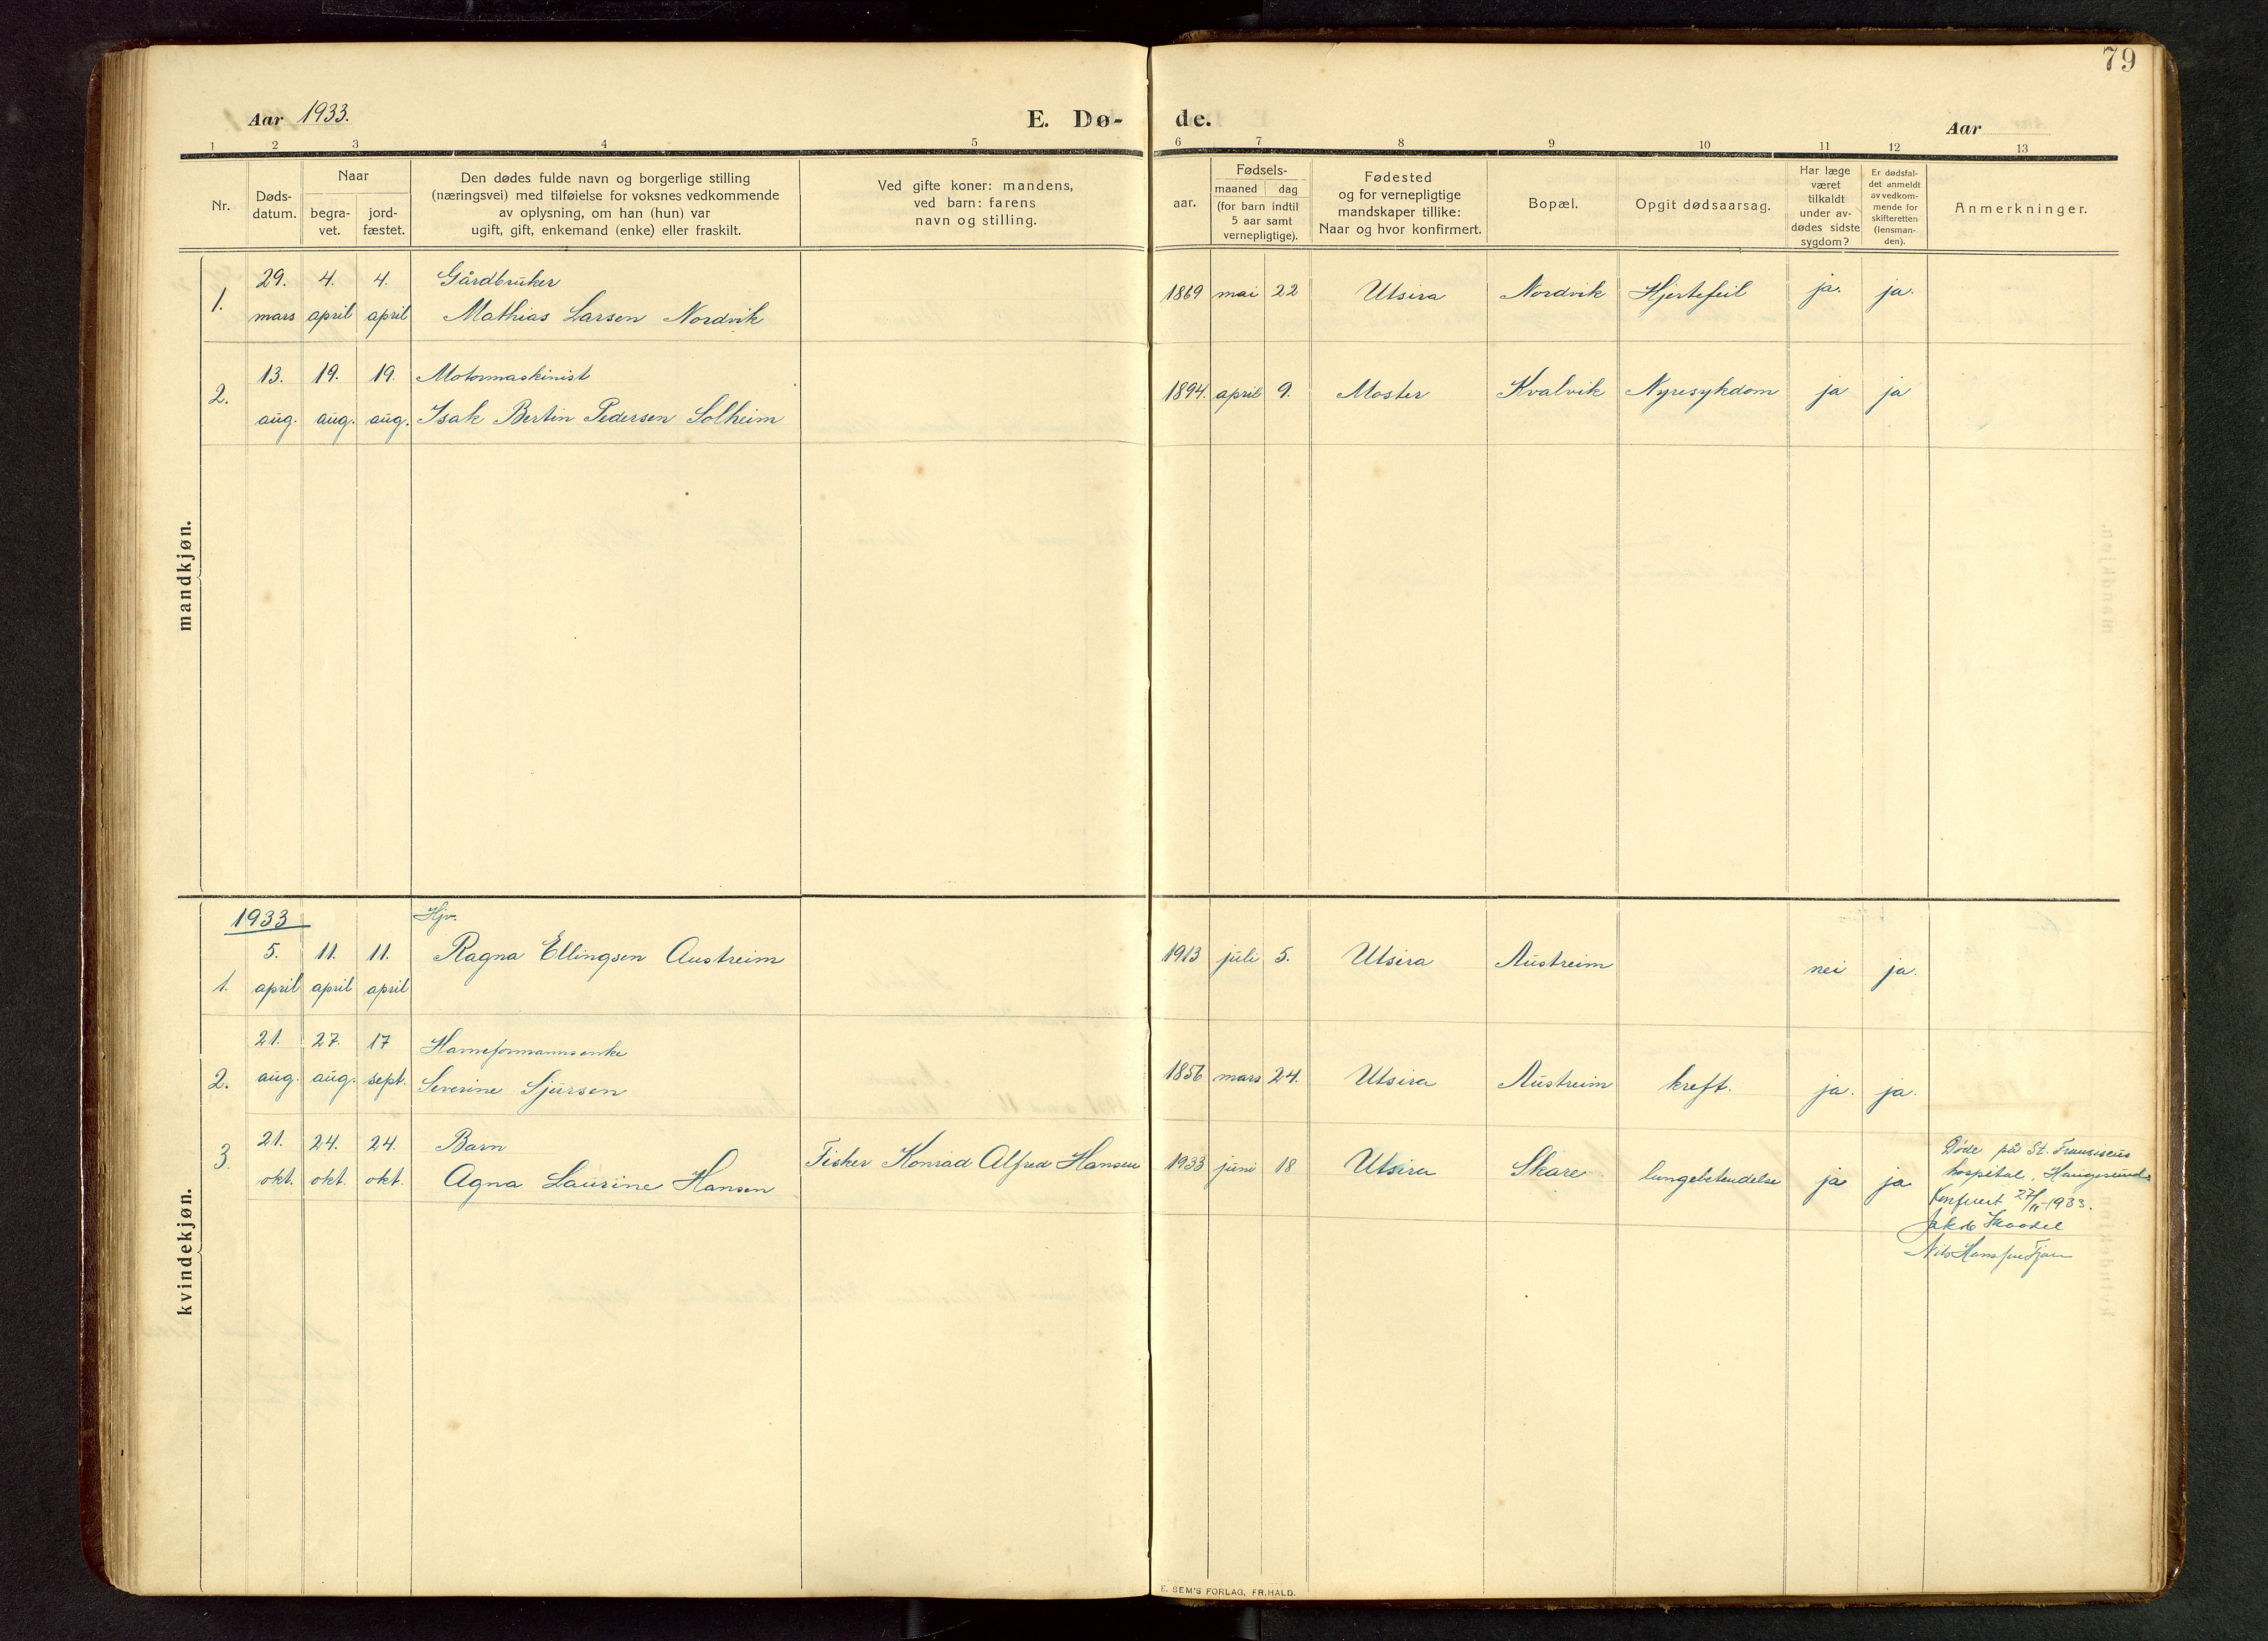 79
Aar 1933.
E. Dø-
de.
Aar
1 2 3 4 5 6 7 8 9 10 11 12 13
Nr.
Døds-
datum.
Naar
begra-
vet.
jord-
fæstet.
Den dødes fulde navn og borgerlige stilling
(næringsvei) med tilføielse for voksnes vedkommende
av oplysning, om han (hun) var
ugift, gift, enkemand (enke) eller fraskilt.
Ved gifte koner: mandens,
ved barn: farens
navn og stilling.
aar.
Fødsels-
maaned dag
(for barn indtil
5 aar samt
vernepligtige).
Fødested
og for vernepligtige
mandskaper tillike:
Naar og hvor konfirmert.
Bopæl.
Opgit dødsaarsag.
Har læge
været
tilkaldt
under av-
dødes sidste
sygdom?
Er dødsfal-
det anmeldt
av vedkom-
mende for
skifteretten
(lensman-
den).
Anmerkninger.
mandkjøn.
29. 4. 4. Gårdbruker
1. mars april april Mathias Larsen Nordvik 1869 mai 22 Utsira Nordvik Hjertefeil ja. ja.
13. 19. 19. Motormaskinist
2. aug. aug. aug. Isak Bertin Pedersen Solheim 1894. april 9. Moster Kvalvik Nyresykdom ja ja
kvindekjøn.
1933 Hjv.
5. 11. 11. Ragna Ellingsen Austreim 1913 juli 5. Utsira Austreim nei ja.
1. april april april
21. 27. 17 Havneformannsenke
2. aug. aug. sept. Severine Sjursen 1856 mars 24. Utsira Austreim kreft. ja. ja.
21. 24. 24. Barn
3. okt. okt. okt. Agna Laurine Hansen Fisker Konrad Alfred Hansen 1933 juni 18 Utsira Skare lungebetendelse ja ja
Døde på St. Fransiscus
hospital, Haugesund.
27/11-1933.
Jakob
Nils Hansen
E. SEM'S FORLAG, FR.HALD.